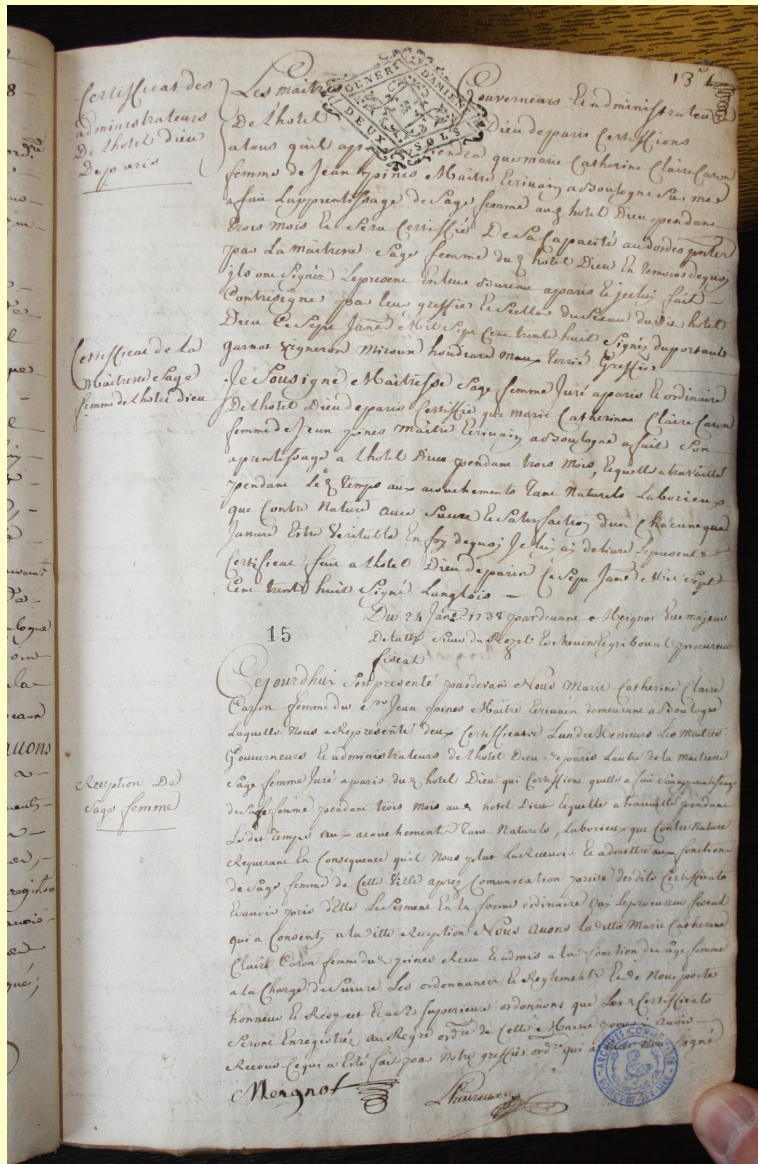 13
Certifficat des
administrateurs
De Lhotel dieu
De paris
Les maitres Gouverneurs Et administrateurs
GENER DAMIENS
DEUX SOLS
De Lhotel Dieu de paris Certiffions
atous quil que marie Catherine Claire Caron
femme de Jean pines Maitre Ecrivain a Boulogne Sur mer
a fait Lapprentissage de Sage femme aud hotel Dieu pendant
trois mois Et Sera Certiffié De Sa Capacité au dos des
par La maitresse Sage femme dud hotel Dieu En temoins dequoy
ils ont Signéz Lepresent En leur Bureau a paris Et fait
Contresigné par leur greffier Et Sceller du Sceau dudit hotel
Dieu Ce Sept Janer Mil Sept Cent trente huit Signés duportault
garnot vigneron Miroux Greffier
Certifficat de La
Maitresse Sage
femme de Lhotel dieu
Je Sousigné Maitresse Sage femme Juré a paris Et ordinaire
De Lhotel Dieu de paris Certiffie que marie Catherinne Claire Caron
femme de Jean pines Maitre Ecrivain a Boulogne a fait Son
aprentissage a Lhotel Dieu pendant trois Mois, Lequelle a travaillé
pendant Led Temps aux acouchements Tant Naturels Laborieux
que Contre Nature avec Succes Et Satisfaction dun Chacun ce que
Jassure Estre Veritable En foy dequoy Je luy ay delivré Lepresent
Certificat fait a Lhotel Dieu de paris Ce Sept Janer Mil Sept
Cent Trente huit Signé Langlois
Du 24 Janer 1738 pardevant Meignot Vice majeur
15
Sieur du Rozel Echevin Et gribouval procureur
fiscal
Cejourdhui Sest presenté pardevant Nous Marie Catherine Claire
Caron femme du Sr Jean pines Maitre Ecrivain demeurant a Boulogne
Laquelle Nous a Representé deux Certificats Lun de Messieurs Les Maitres
Gouverneurs Et administrateurs de Lhotel Dieu de paris Lautre de la Maitresse
Sage femme Juré a paris dud hotel Dieu qui Certiffient quelle a fait Son apprentissage
Reception De
Sage femme
de Sage femme pendant trois mois aud hotel Dieu Lequelle a travaillé pendant
Ledit Temps aux acouchements Tant Naturels, Laborieux que Contre Nature
Requerant En Consequence quil Nous plut La Recevoir Et admettre aux fonctions
de Sage femme de Cette Ville aprez Comunication prise desdits Certificats
Et avoir pris d'Elle Le Serment En la forme ordinaire Oui Le procureur fiscal
qui a Consenti a la ditte Reception Nous avons Laditte Marie Catherine
Claire Caron femme dud pines Receu Et admis a la fonction de Sage femme
a la Charge de Suivre Les ordonnances Et Reglements Et de Nous porter
honneur Et Respect Superieurs ordonnons que Les Certificats
Seront Enregistréz au Regre ordre de Cette Mairie pour y avoir
Recours Ce qui a Esté fait par Notre greffier ordre qui a avec Nous Signé
Meignot
Lheureux
ARCHIVES COMMUNALES